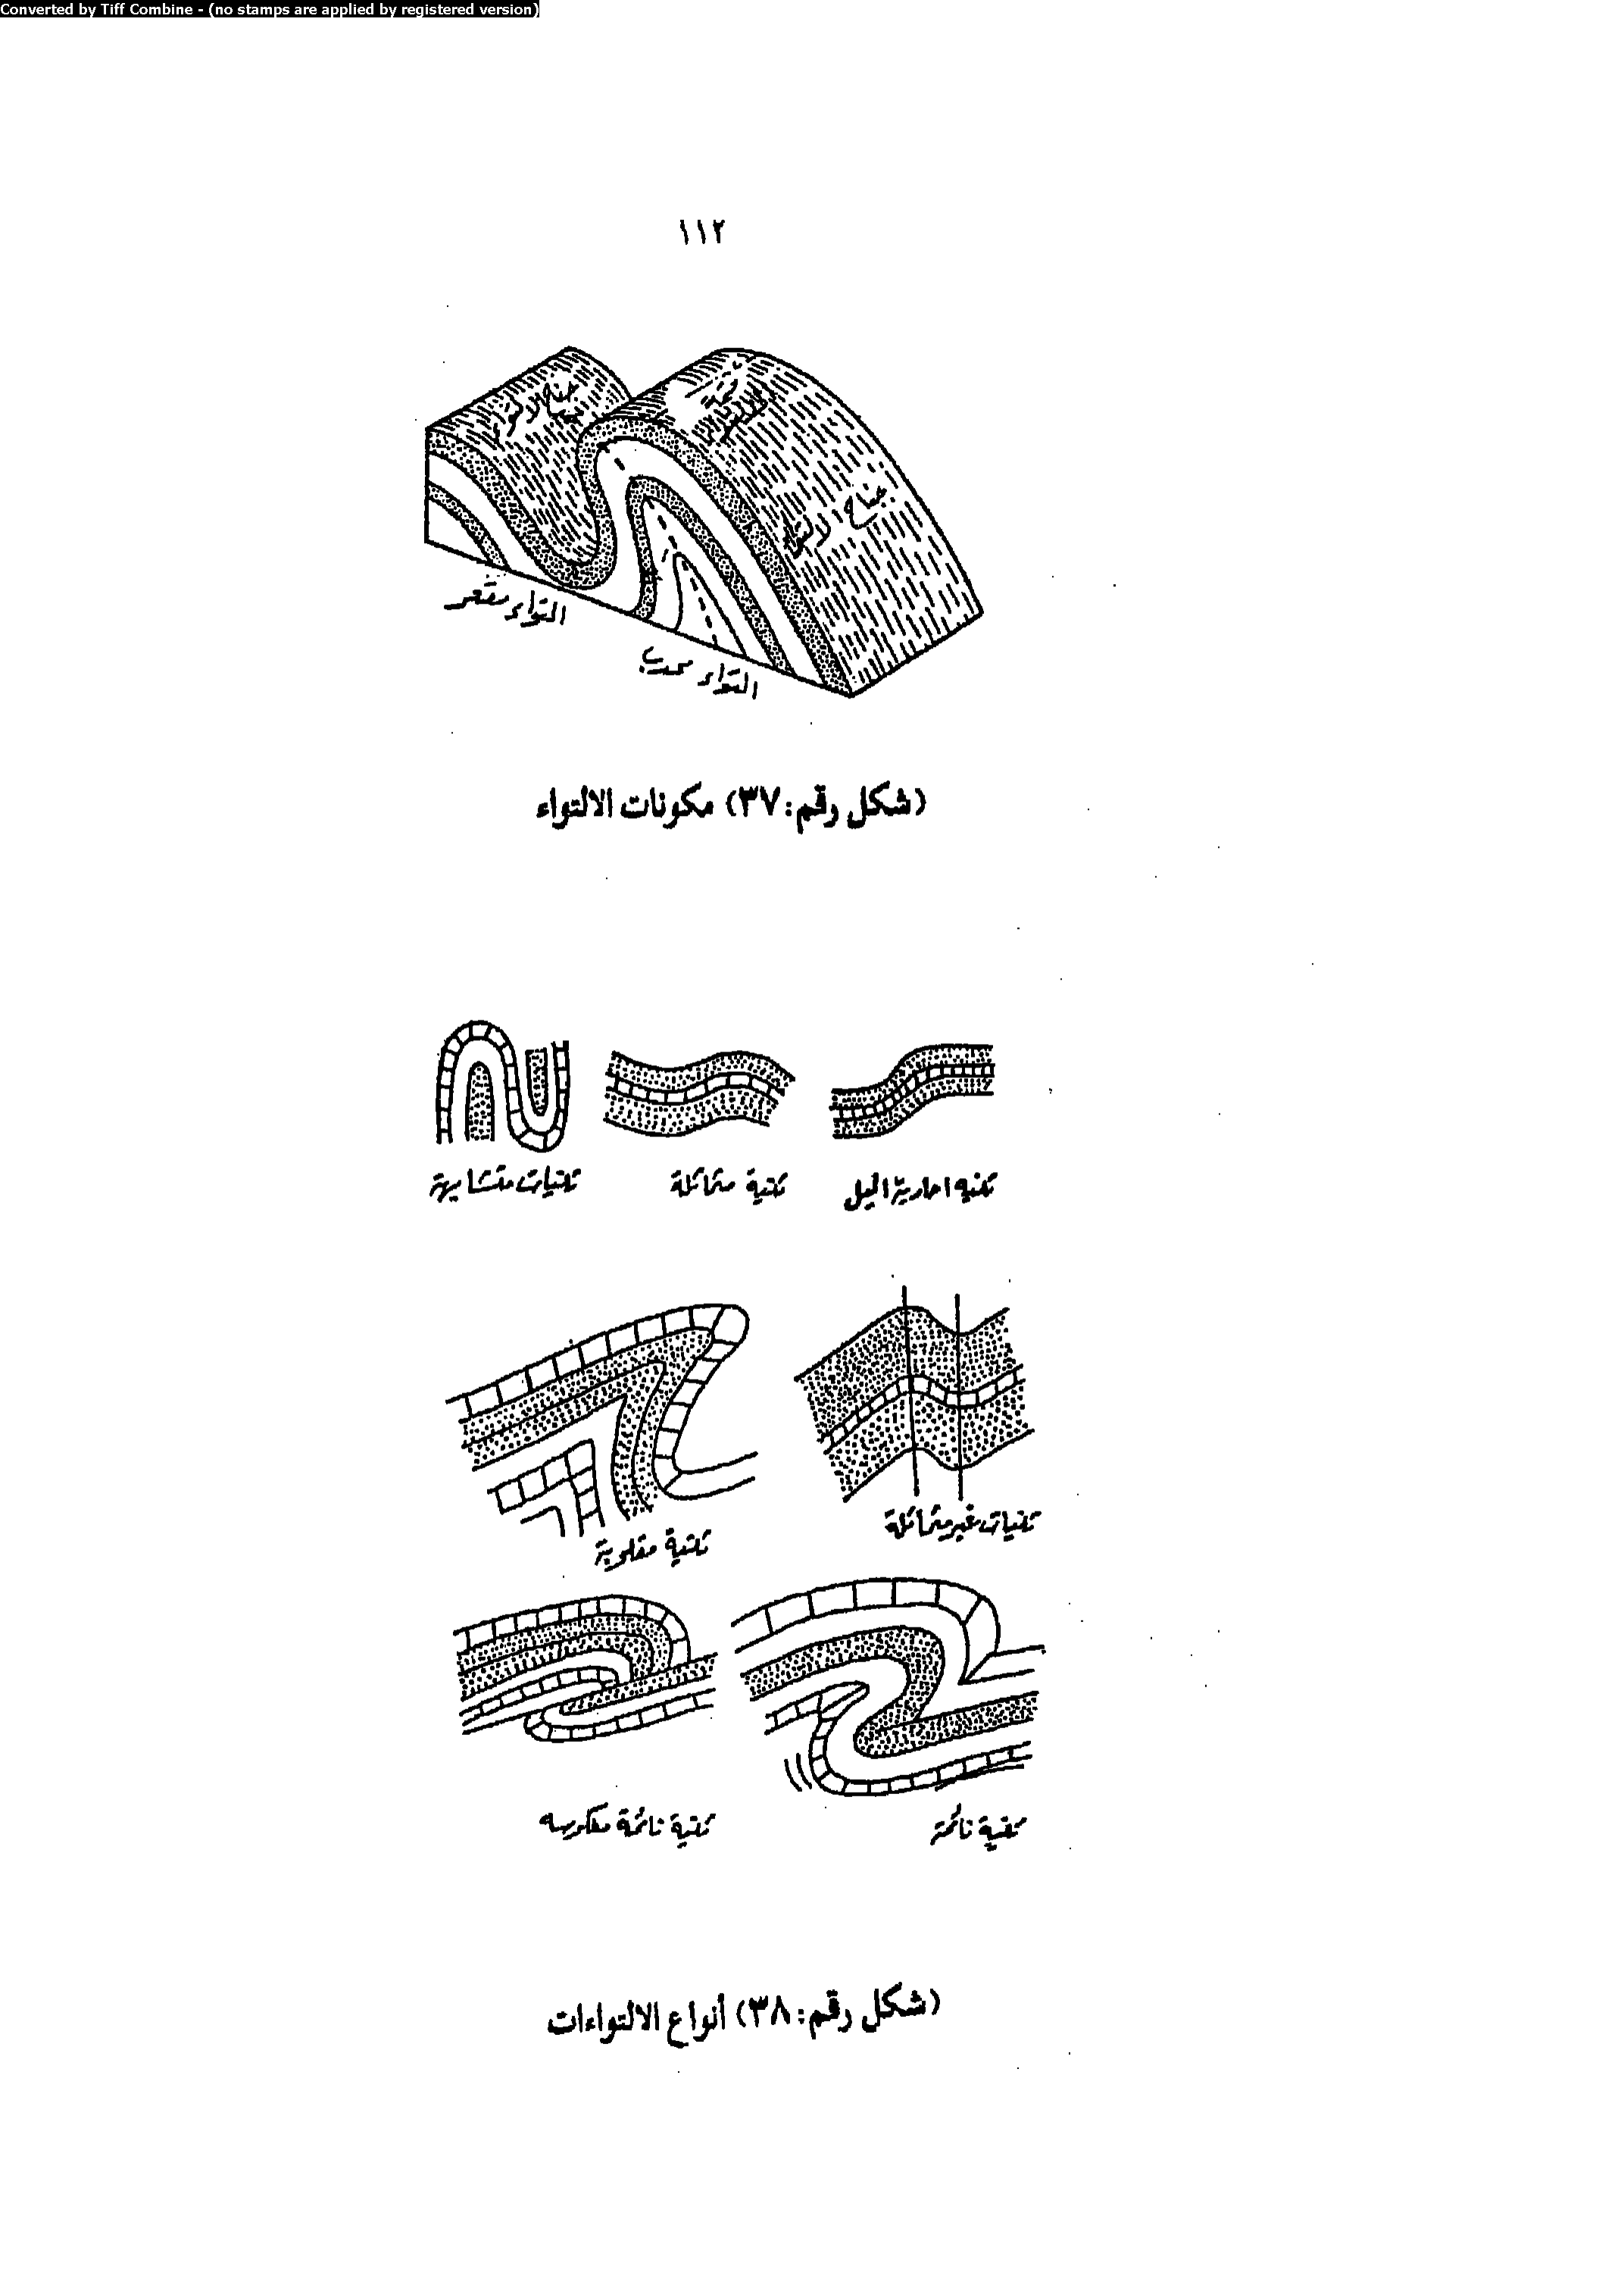 Converted by Tiff Combine - (no stamps are applied by registered version)
١١٢
جناح الالتواء
قمة الالتواء
جناح الالتواء
التواء مقعر
التواء محدب
(شكل رقم: ٣٧) مكونات الالتواء
ثنيه احادية الميل
ثنية متماثلة
ثنيات متشابهة
ثنيات غير متماثلة
ثنية مقلوبة
ثنية نائمة
ثنية نائمة معكوسه
(شكل رقم: ٣٨) أنواع الالتواءات